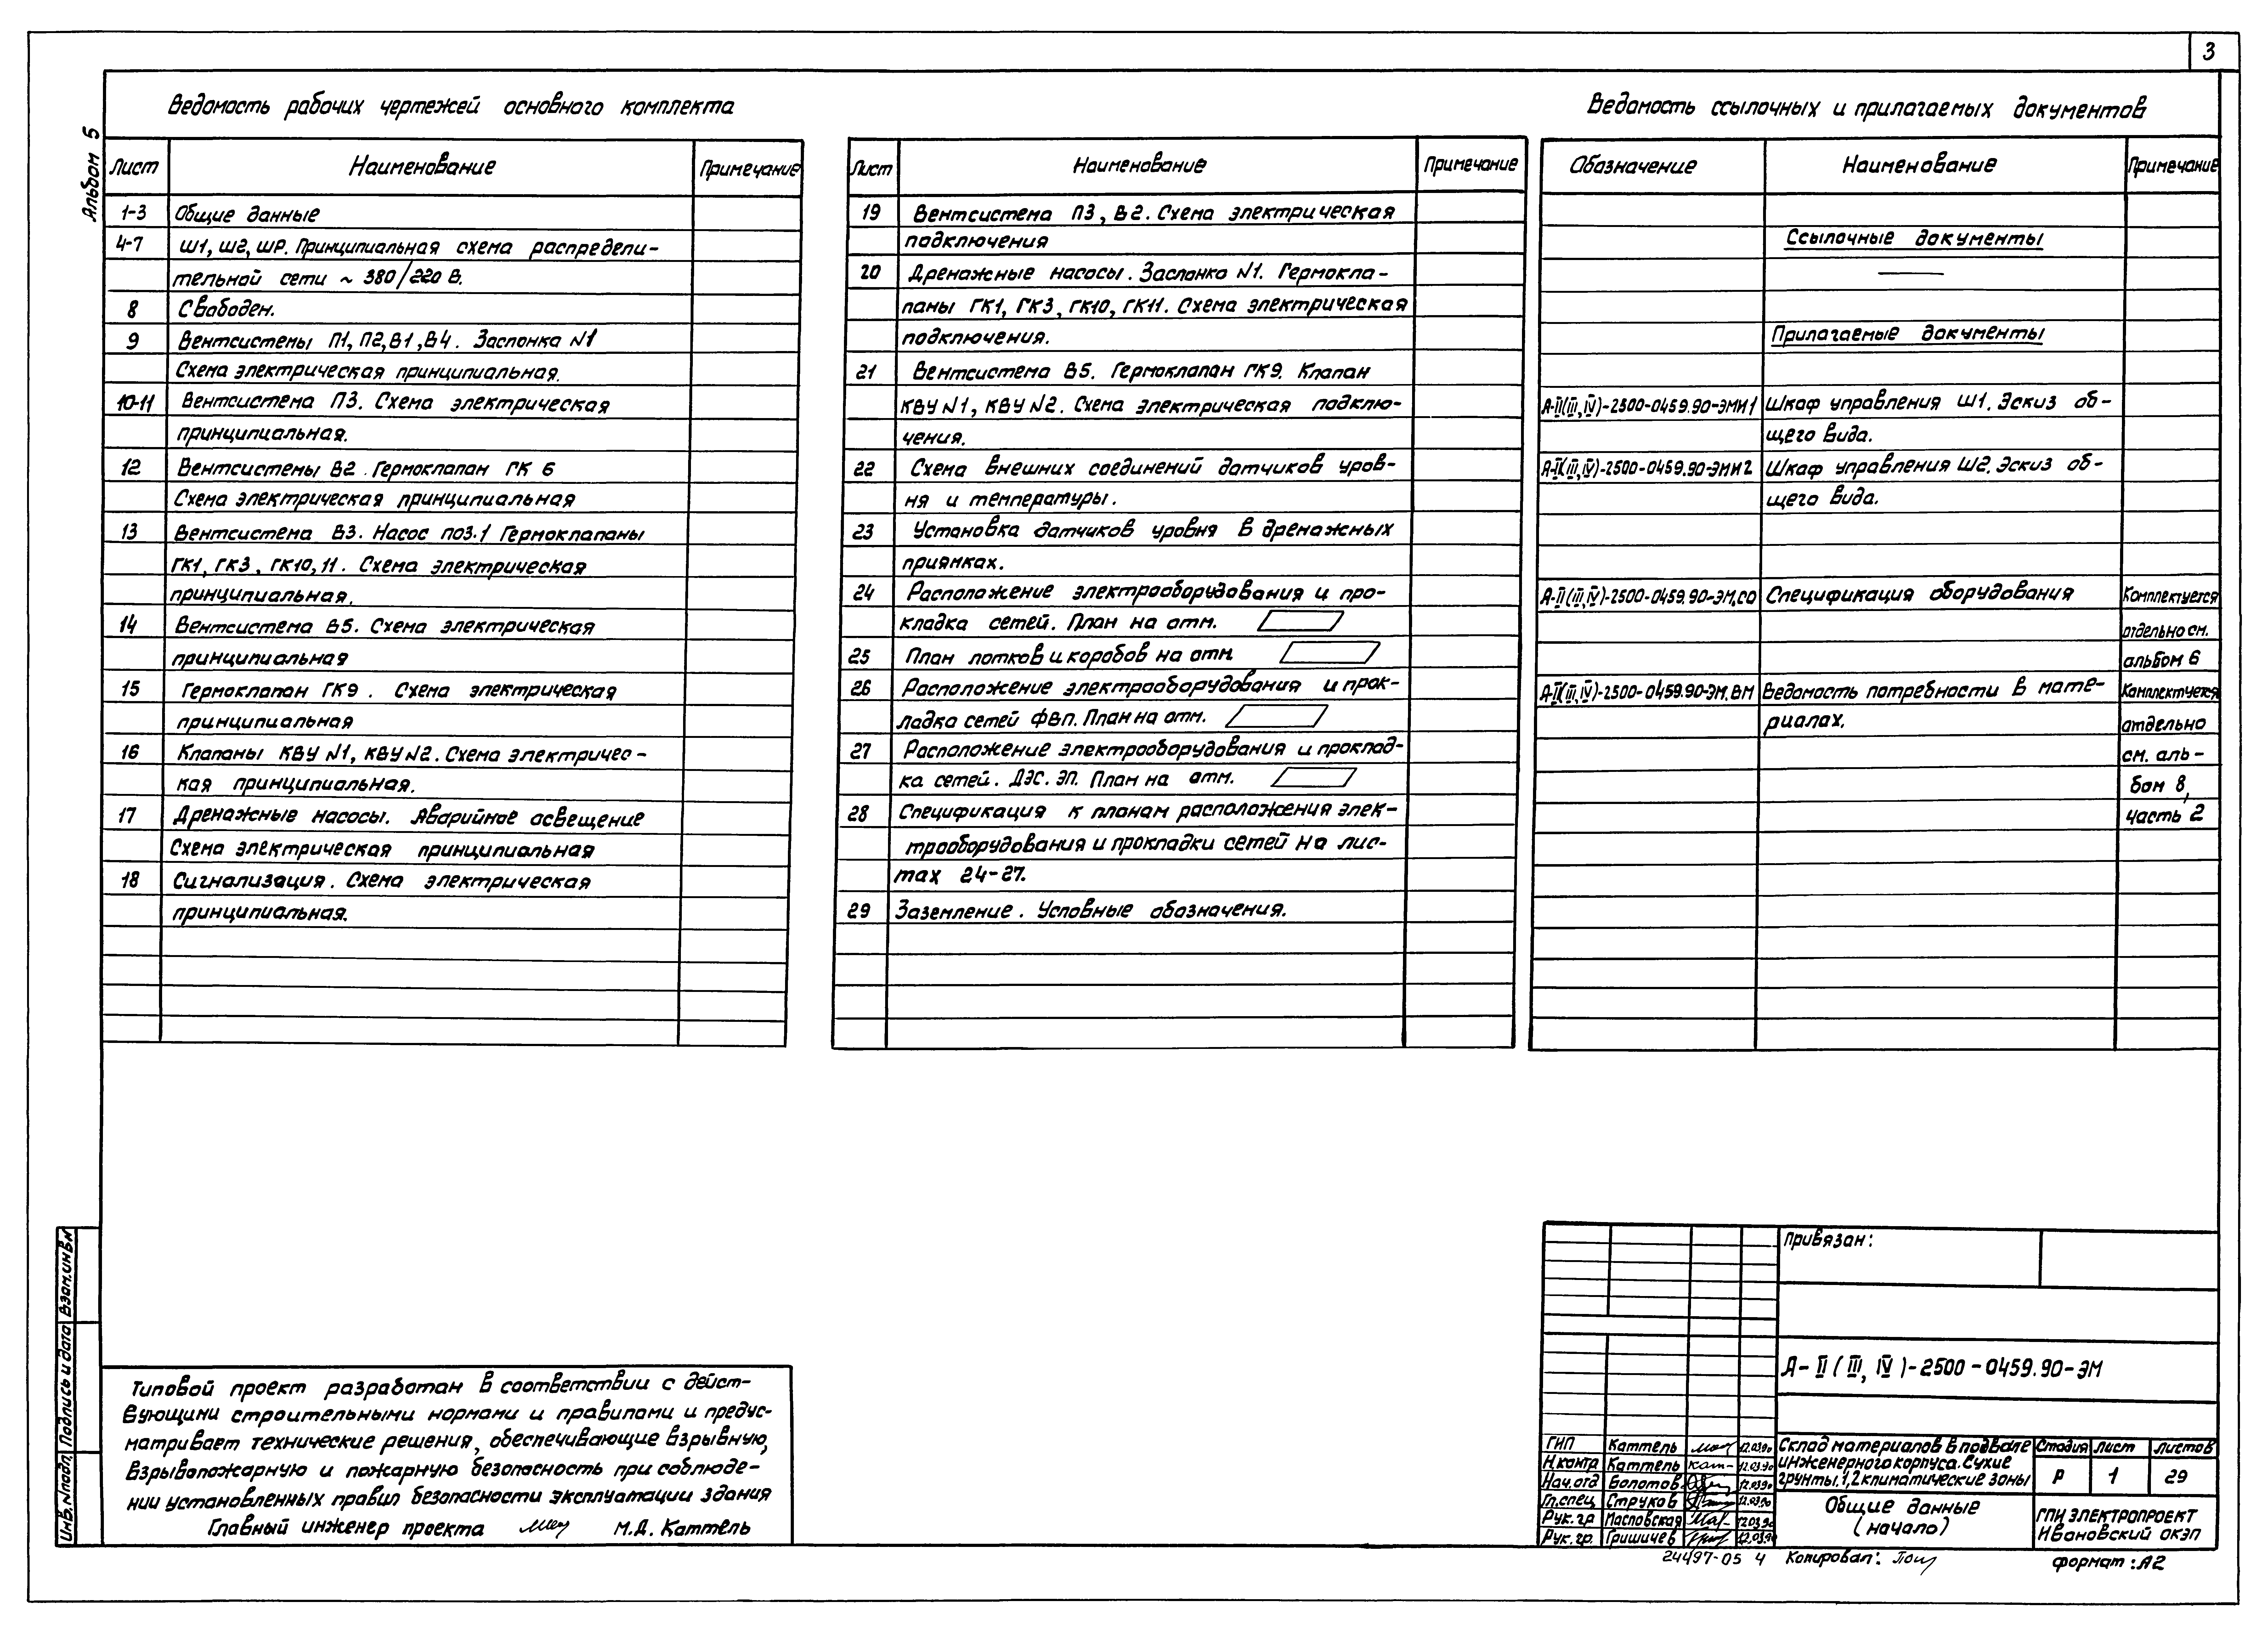 3
Альбом 5
Ведомость рабочих чертежей основного комплекта
Лист Наименование Примечание
1-3 Общие данные
4-7 Ш1, Ш2, ШР. Принципиальная схема распредели-
тельной сети ~ 380/220 В.
8 Свободен.
9 Вентсистемы П1, П2, В1, В4. Заслонка N1
Схема электрическая принципиальная.
10-11 Вентсистема П3. Схема электрическая
принципиальная.
12 Вентсистемы В2. Гермоклапан ГК 6
Схема электрическая принципиальная
13 Вентсистема В3. Насос поз.1 Гермоклапаны
ГК1, ГК3, ГК10, 11. Схема электрическая
принципиальная.
14 Вентсистема В5. Схема электрическая
принципиальная
15 Гермоклапан ГК9. Схема электрическая
принципиальная
16 Клапаны КВУ N1, КВУ N2. Схема электричес-
кая принципиальная.
17 Дренажные насосы. Аварийное освещение
Схема электрическая принципиальная
18 Сигнализация. Схема электрическая
принципиальная.
Лист Наименование Примечание
19 Вентсистема П3, В2. Схема электрическая
подключения
20 Дренажные насосы. Заслонка N1. Гермокла-
паны ГК1, ГК3, ГК10, ГК11. Схема электрическая
подключения.
21 Вентсистема В5. Гермоклапан ГК9. Клапан
КВУ N1, КВУ N2. Схема электрическая подклю-
чения.
22 Схема внешних соединений датчиков уров-
ня и температуры.
23 Установка датчиков уровня в дренажных
приямках.
24 Расположение электрооборудования и про-
кладка сетей. План на отм.
25 План лотков и коробов на отм.
26 Расположение электрооборудования и прок-
ладка сетей ФВП. План на отм.
27 Расположение электрооборудования и проклад-
ка сетей. ДЭС. ЭП. План на отм.
28 Спецификация к планам расположения элек-
трооборудования и прокладки сетей на лис-
тах 24-27.
29 Заземление. Условные обозначения.
Ведомость ссылочных и прилагаемых документов
Обозначение Наименование Примечание
Ссылочные документы
—
Прилагаемые документы
А-II(III,IV)-2500-0459.90-ЭМИ1 Шкаф управления Ш1. Эскиз об-
щего вида.
А-II(III,IV)-2500-0459.90-ЭМИ2 Шкаф управления Ш2. Эскиз об-
щего вида.
А-II(III,IV)-2500-0459.90-ЭМ.СО Спецификация оборудования Комплектуется
отдельно см.
альбом 6
А-II(III,IV)-2500-0459.90-ЭМ.ВМ Ведомость потребности в мате- Комплектуется
риалах. отдельно
см. аль-
бом 8,
часть 2
Инв.N подл. Подпись и дата Взам.инв.N
Типовой проект разработан в соответствии с дейст-
вующими строительными нормами и правилами и предус-
матривает технические решения, обеспечивающие взрывную,
взрывопожарную и пожарную безопасность при соблюде-
нии установленных правил безопасности эксплуатации здания
Главный инженер проекта М.Д. Каттель
Привязан:
А-II(III, IV)-2500-0459.90-ЭМ
ГИП Каттель 12.03.90
Н.контр Каттель 12.03.90
Нач.отд Болотов 12.03.90
Гл.спец Струков 12.03.90
Рук.гр Масловская 12.03.90
Рук.гр. Гришичев 12.03.90
Склад материалов в подвале
инженерного корпуса. Сухие
грунты. 1,2 климатические зоны
Стадия Лист Листов
Р 1 29
Общие данные
(начало)
ГПИ ЭЛЕКТРОПРОЕКТ
Ивановский ОКЭП
24497-05 4 Копировал: формат: А2